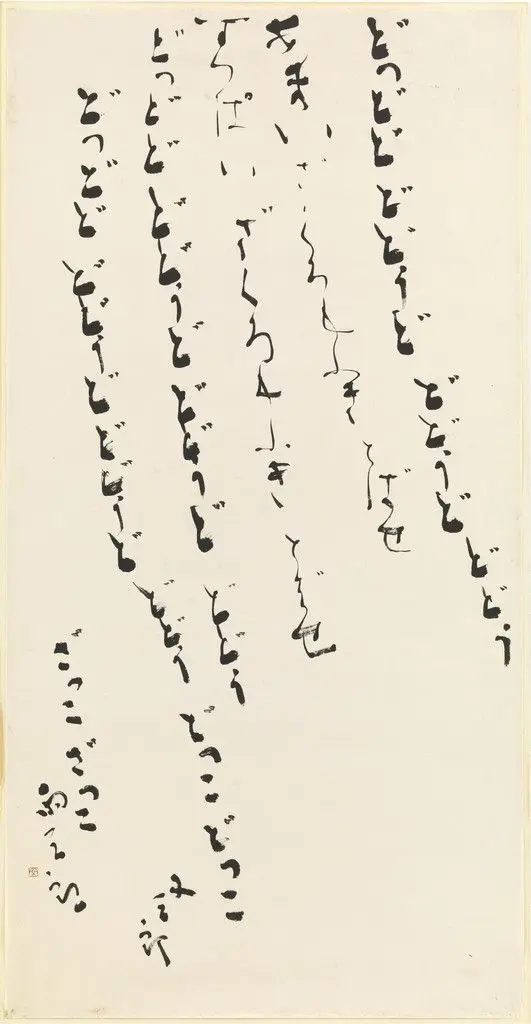 どつどどどどうどどどうどどどう
あまいざくろもふきとばせ
すつぱいざくろもふきとばせ
どつどどどどうどどどうどどどう
どつどどどどうどどどうどどどう
どつこどつこ
又三郎
ざつこざつこ
雨三郎